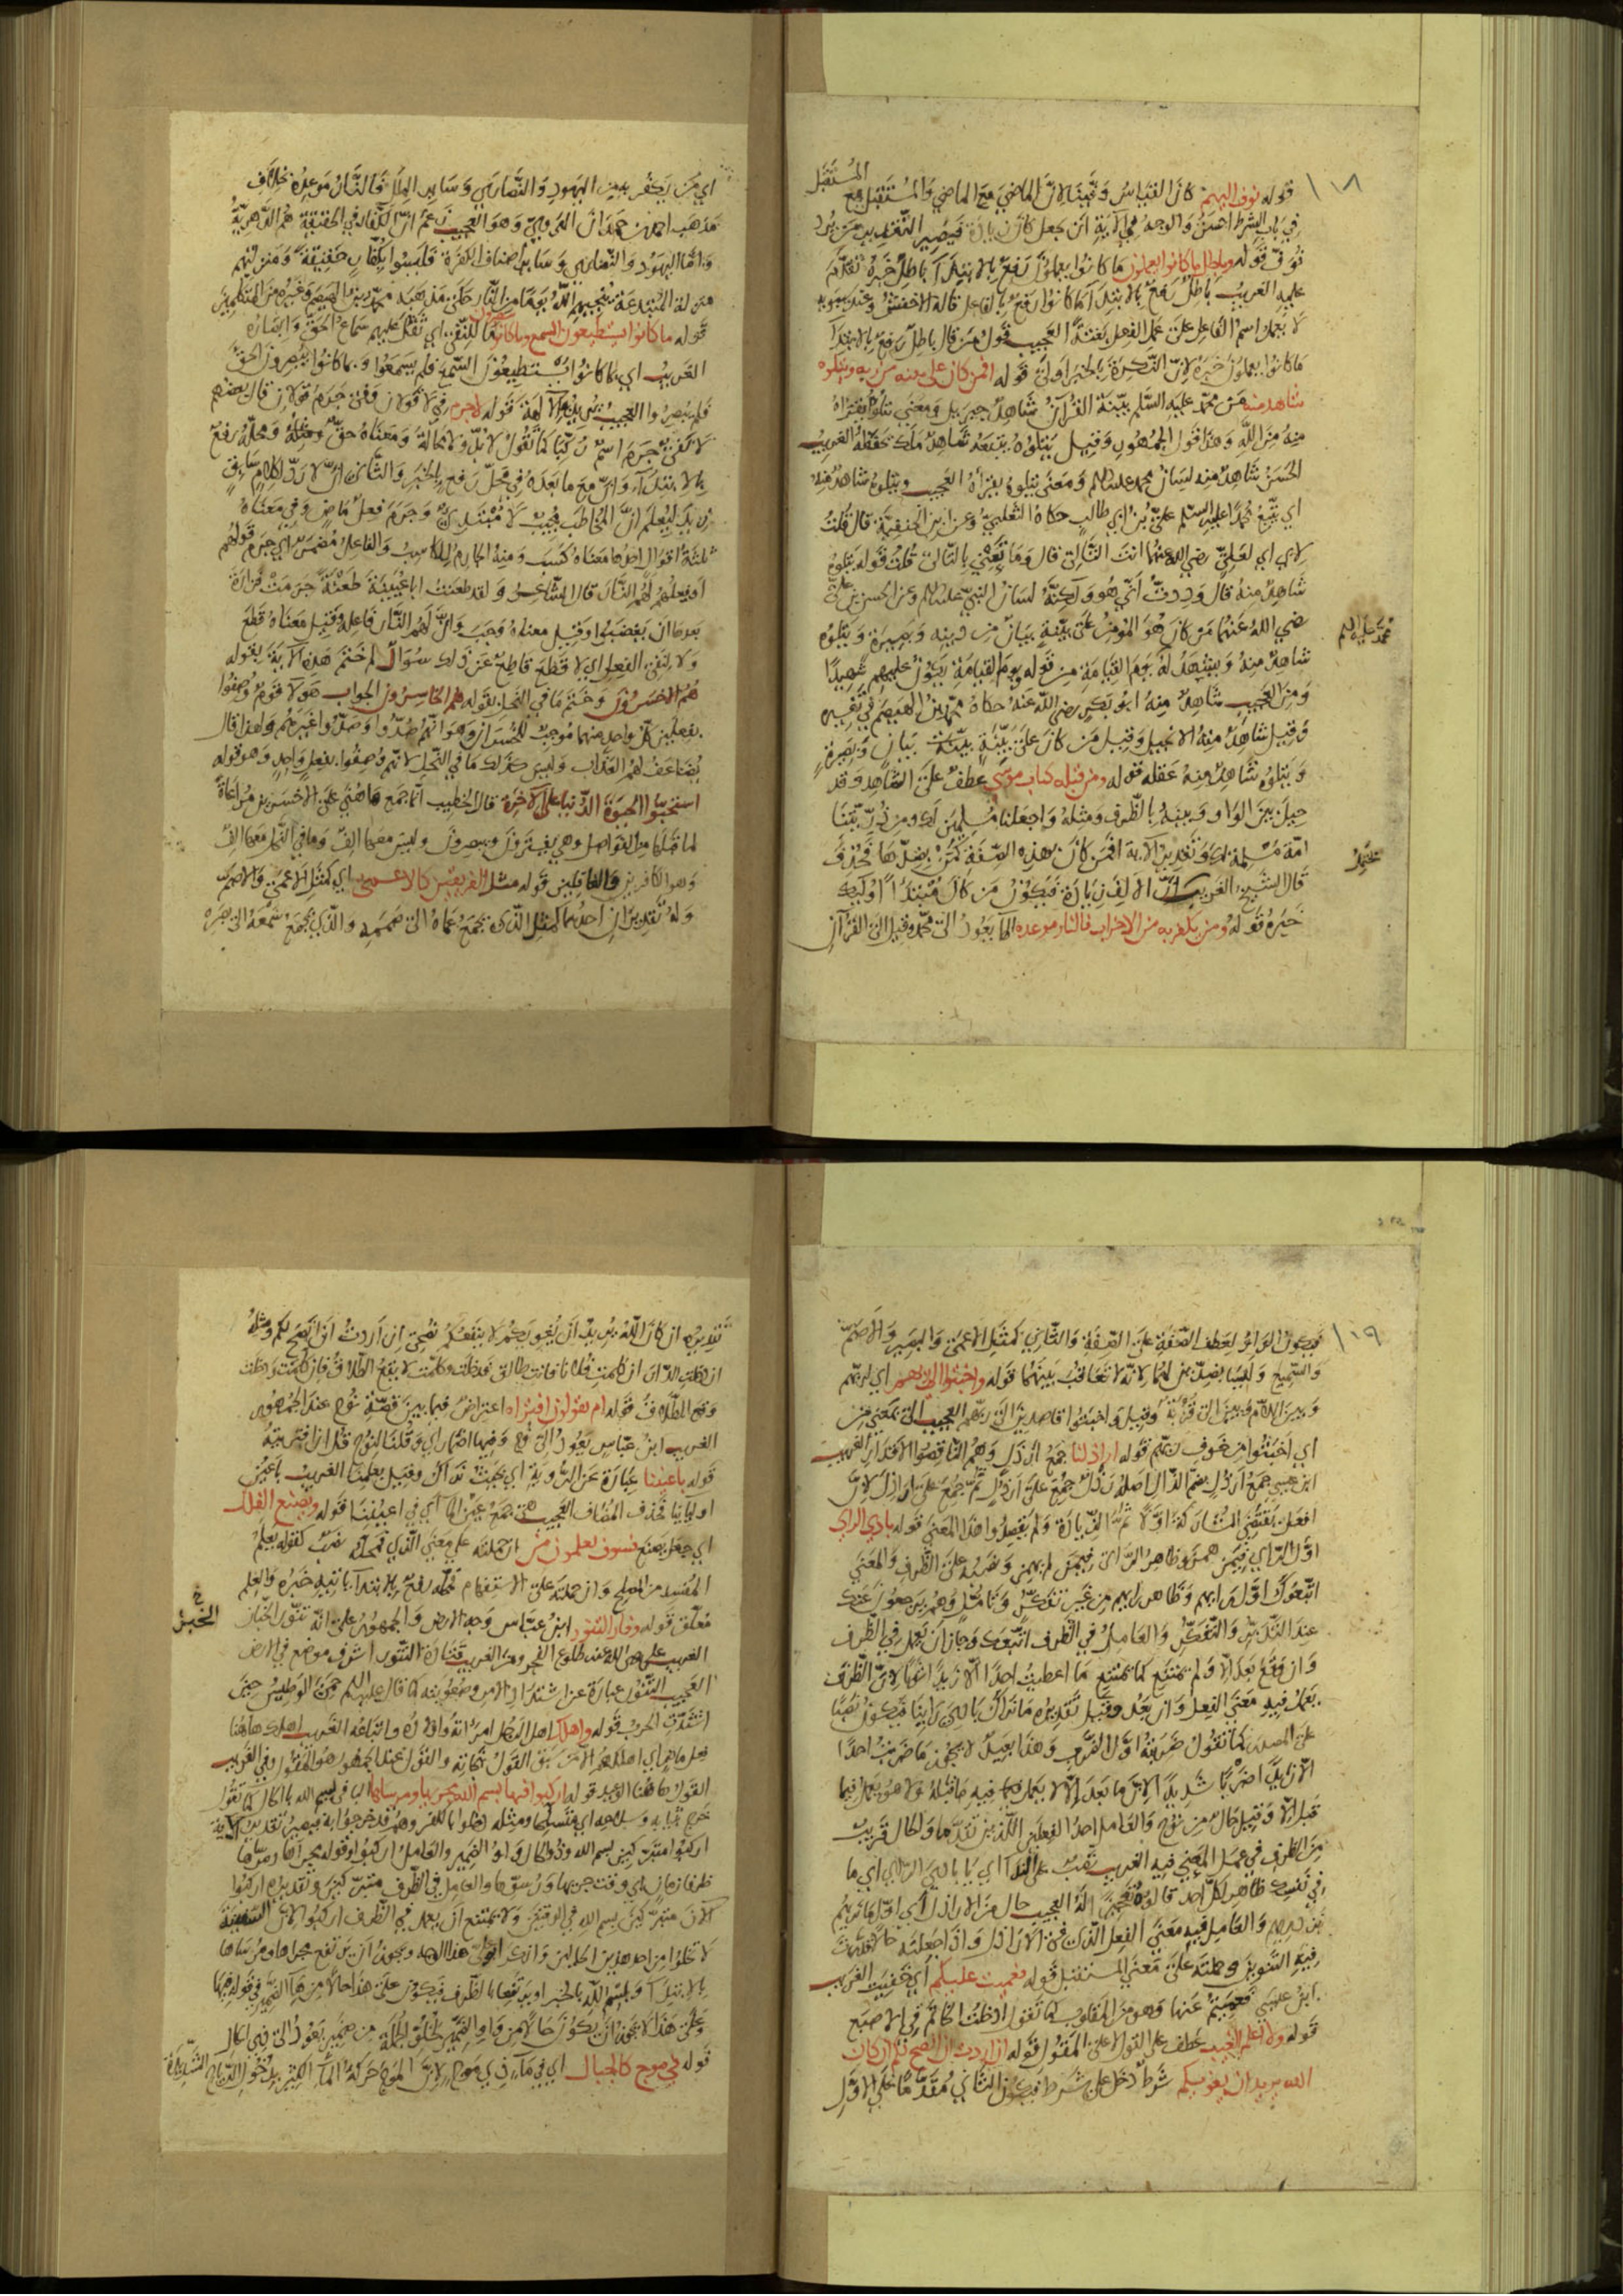 ١٠٨
المستقبل
قوله نوف اليهم كان القياس وتجيبنا لان الماضي مع الماضي والمستقبل مع
في باب الشرط احسن والوجه في الآية ان يجعل كان زيادة فيصير التقدير من يرد
نوف قوله وباطل ما كانوا يعملون ما كانوا يعملون رفع بالابتدآ باطل خبره تقدم
عليه الغريب باطل رفع بالابتدآ ما كانوا رفع بالفاعل قاله الاخفش وعند سيبويه
لا يعمل اسم الفاعل عمل الفعل بغتة العجيب قول من قال باطل رفع بالابتدآ
ما كانوا يعملون خبره لان النكرة بالخبر اولى قوله افمن كان على بينة من ربه ويتلوه
شاهد منه من محمد عليه السلم بينة القرآن شاهد جبريل ومعنى يتلوه يقرأه
منه من الله وهذا قول الجمهور وقيل يتلوه يتبعه شاهد ملك يحفظه الغريب
الحسن شاهد منه لسان محمد عليه السلم ومعنى يتلوه يقرأه العجيب ويتلوه شاهد منه
اي يتبع محمدا عليه السلم علي بن ابي طالب حكاه الثعلبي وعن ابن الحنفية قال قلت
لابي اي لعلي رضي الله عنهما انت التالي قال وما تعني بالتالي قلت قوله يتلوه
شاهد منه قال وددت اني هو ولكنه لسان النبي عليه السلم وعن الحسن بن علي
رضي الله عنهما من كان هو المؤمن على بينة بيان من دينه وبصيرة ويتلوه
محمد عليه السلم
شاهد منه ويشهد له يوم القيامة من قوله يوم القيامة يكون عليهم شهيدا
ومن العجيب شاهد منه ابو بكر رضي الله عنه حكاه محمد بن الهيصم في تفسيره
وقيل شاهد منه الانجيل وقيل من كان على بينة بينة بيان وبصيرة
ويتلوه شاهد منه عقله قوله ومن قبله كتاب موسى عطف على الشاهد وقد
حيل بين الواو وبينه بالظرف ومثله واجعلنا مسلمين لك ومن ذريتنا
امة مسلمة لك وتقدير الآية افمن كان بهذه الصفة كمن يضلها فحذف
قال الشيخ الغريب ان الالف زيادة فيكون من كان مبتدأ اولئك
خبره قوله ومن يكفر به من الاحزاب فالنار موعده الها يعود الى محمد وقيل الى القرآن
اي من يكفر به من اليهود والنصارى وسائر الملل فالنار موعده خلاف
مذهب احمد بن حمدان الهروي وهو العجيب زعم ان الكفار في الحقيقة هم الدهرية
واما اليهود والنصارى وسائر اصناف الكفرة فليسوا بكفار حقيقة ومنزلتهم
منزلة المبتدعة ينجيهم الله يوما من النار حكى مذهبه محمد بن الهيصم وغيره من المتكلمين
قوله ما كانوا يستطيعون السمع وما كانوا يبصرون ما للنفي اي ثقل عليهم سماع الحق وابصاره
الغريب اي بما كانوا يستطيعون السمع فلم يسمعوا وبما كانوا يبصرون الحق
فلم يبصروا العجيب يريد الآلهة قوله لا جرم في لا قولان وفي جرم قولان قال بعضهم
لا نفي جرم اسم ركبا كما تقول لا بد ولا محالة ومعناه حق ومحله رفع
بالابتدآء وان مع ما بعده في محل رفع بالخبر والثاني ان لا رد لكلام سابق
زيد ليعلم ان المخاطب مجيب لا مبتدئ وجرم فعل ماض وفي معناه
ثلثة اقوال احدها معناه كسب ومنه الجارم للكاسب والفاعل مضمر اي جرم قولهم
او فعلهم لهم النار قال الشاعر ولقد طعنت ابا عيينة طعنة جرمت فزارة
بعدها ان يغضبوا وقيل معناه وجب وان لهم النار فاعله وقيل معناه قطع
ولا لنفي الفعل اي لا قطع قاطع عن ذلك سؤال لم ختم هذه الآية بقوله
هم الاخسرون وختم ما في النحل بقوله هم الخاسرون الجواب هؤلاء قوم وصفوا
بفعلين كل واحد منهما موجب للخسران وهو انهم صدوا وضلوا غيرهم ولهذا قال
يضاعف لهم العذاب وليس كذلك ما في النحل لانهم وصفوا بفعل واحد وهو قوله
استحبوا الحيوة الدنيا على الآخرة قال الخطيب انما جمع ها هنا على الاخسرين مراعاة
لما قبلها من الفواصل وهي يفترون ويبصرون وليس معها الف وما في النحل معها الف
وهو الكافرين والغافلين قوله مثل الفريقين كالاعمى اي كمثل الاعمى والاصم
وله تقديران احدهما كمثل الذي يجمع عماه الى صممه والذي يجمع سمعه الى بصره
١٠٩
فيكون الواو لعطف الصفة على الصفة والثاني كمثل الاعمى والبصير والاصم
والسميع وليسا بضدين لهما لانه لا تعاقب بينهما قوله واخبتوا الى ربهم اي لربهم
وبين اللام وبين الى قرابة وقيل واخبتوا قاصدين الى ربهم العجيب الى بمعنى من
اي اخبتوا من خوف ربهم قوله اراذلنا جمع ارذل وهم الناقصوا الاقدار الغريب
ابن عيسى جمع ارذل بضم الذال اصله رذل جمع على ارذل ثم جمع على اراذل لان
افعل يقتضي المشاركة اولا ثم الزيادة ولم يقصدوا هذا المعنى قوله بادي الراي
اول الراي فيمن همز وظاهر الراي فيمن لم يهمز ونصبه على الظرف والمعنى
اتبعوك اول رايهم وظاهر رايهم من غير تفكر وتأمل وهم يرجعون عنك
عند التدبر والتفكر والعامل في الظرف اتبعوك وجاز ان يعمل في الظرف
وان وقع بعد الا ولم يمتنع كما يمتنع ما اعطيت احدا الا زيدا شيئا لان الظرف
يعمل فيه معنى الفعل وان بعد وقيل تقديره ما نراك بادي راينا فيكون نصبا
على المصدر كما تقول ضربته اول الضرب وهذا بعيد لا يجوز ما ضربت احدا
الا زيدا ضربا شديدا لان ما بعد الا لا يعمل فيما فيه ما قبله ولا هو يعمل فيما
قبل الا وقيل حال من نوح والعامل احد الفعلين اللذين تقدما والحال قريب
من الظرف في عمل المعنى فيه الغريب نصب على الندآ اي يا بادي الراي اي ما
في نفسك ظاهر لكل احد قالوه تعجيزا له العجيب حال من الاراذل
فيه التنوين وحملته على معنى المستقبل قوله فعميت عليكم اي خفيت الغريب
ابن عيسى فعميتم عنها وهو من المقلوب كما تقول ادخلت الخاتم في الاصبع
قوله ولا اعلم الغيب عطف على القول لا على المقول قوله ان اردت ان انصح لكم ان كان
الله يريد ان يغويكم شرط دخل على شرط فيكون الثاني مقدما على الاول
تقديره ان كان الله يريد ان يغويكم لا ينفعكم نصحي ان اردت ان انصح لكم ومثله
ان دخلت الدار ان كلمت فلانا فانت طالق فدخلت وكلمت لا يقع الطلاق فان كلمت ودخلت
وقع الطلاق قوله ام يقولون افتراه اعتراض فيما بين قصة نوح عند الجمهور
الغريب ابن عباس يعود الى نوح وفيها اضمار اي وقلنا لنوح قل ان افتريته
قوله باعيننا عبارة عن الرؤية اي بحيث نراك وقيل بعلمنا الغريب باعين
اوليائنا فحذف المضاف العجيب هي جمع عين الما اي في اعيننا قوله ويصنع الفلك
اي جعل يصنع فسوف تعلمون من ان حملته على معنى الذي فمحله نصب كقوله يعلم
المفسد من المصلح وان حملته على الاستفهام فمحله رفع بالابتدآ ياتيه خبره والعلم
معلق قوله وفار التنور ابن عباس وجه الارض والجمهور على انه تنور الخباز
الخبز
الغريب علي رضي الله عنه طلوع الفجر ومن الغريب قتادة التنور اشرف موضع في الارض
العجيب التنور عبارة عن اشتداد الامر وصعوبته كما قال عليه السلم حمي الوطيس حين
اشتدت الحرب قوله واهلك اهل الرجل امرأته واولاده واتباعه الغريب اهلك هاهنا
القول هاهنا الوعيد قوله اركبوا فيها بسم الله مجريها ومرسيها البا في بسم الله باالحال كما تقول
اركبوا متبركين بسم الله وذو الحال واو الضمير والعامل اركبوا وقوله مجراها ومرساها
ظرفا زمان اي وقت جريها ورسوها والعامل في الظرف متبركين وتقديره اركبوا
الآن متبركين بسم الله في الوقتين ولا يمتنع ان يعمل في الظرف اركبوا لان السفينة
لا تخلوا من احد هذين الحالين ويجوز ان يرتفع مجراها ومرساها
بالابتدآ وبسم الله بالخبر او يرتفعا بالظرف فيكون على هذا حالا من ها الضمير في قوله فيها
وعلى هذا لا يجوز ان يكون حالا من واو الضمير لخلو الجملة من ضمير يعود الى ذي الحال
قوله في موج كالجبال اي في مآء ذي موج لان الموج حركة المآء الكثير بدخول الرياح الشديدة